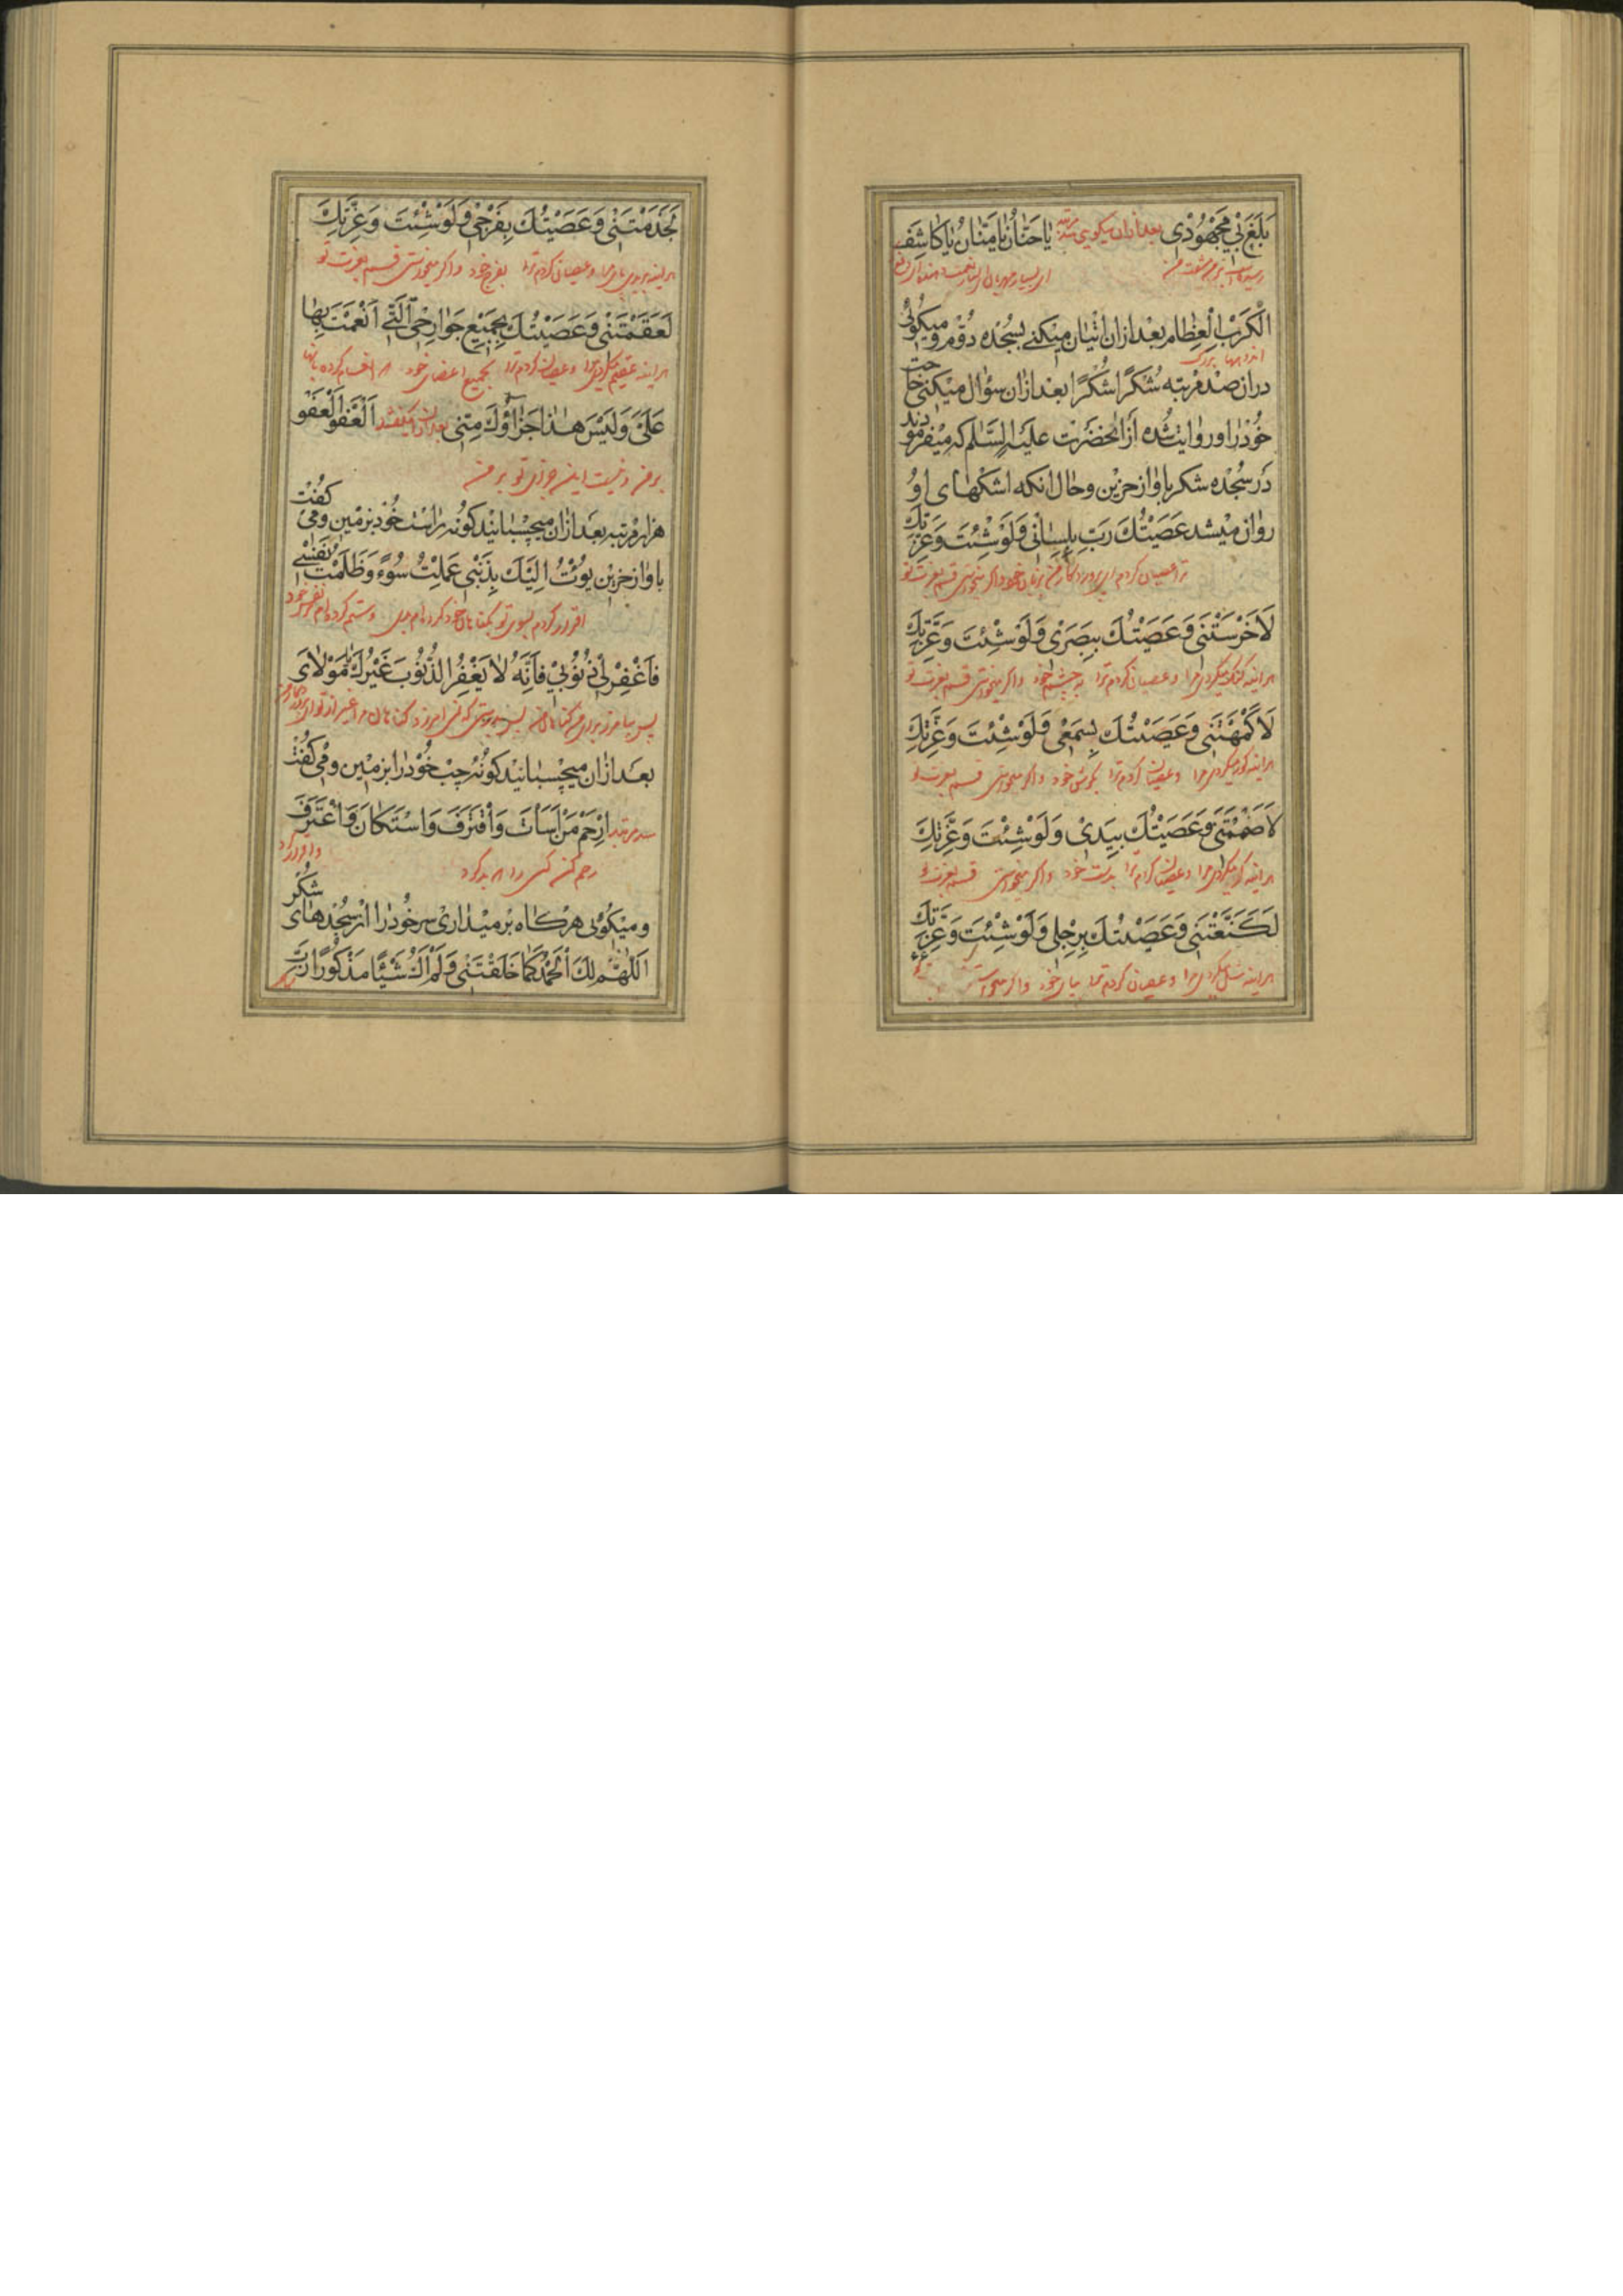 بَلَغَ بِي مَجْهُوْدِي بعد ازان میگوئی سه مرتبه یَا حَنَّانُ یَا مَنَّانُ یَا کَاشِفَ
الْکَرْبِ الْعِظَامِ بعد ازان اتیان میکنی بسجده دوم و میگوئی
اندوههای بزرگ
دران صد مرتبه شُکْرًا شُکْرًا بعد ازان سؤال میکنی حاجت
خود را و روایت شده از انحضرت علیه السلام که میفرمودند
در سجده شکر باواز حزین و حال انکه اشکهای او
روان میشد عَصَیْتُكَ رَبِّ بِلِسَانِی وَلَوْ شِئْتَ وَعِزَّتِكَ
ترا عصیان کردم ای پروردگار من بزبان خود و اگر میخواستی قسم بعزت تو
لَاَخْرَسْتَنِی وَعَصَیْتُكَ بِبَصَرِی وَلَوْ شِئْتَ وَعِزَّتِكَ
هراینه کنک میکردی مرا و عصیان کردم ترا بچشم خود و اگر میخواستی قسم بعزت تو
لَاَکْمَهْتَنِی وَعَصَیْتُكَ بِسَمْعِی وَلَوْ شِئْتَ وَعِزَّتِكَ
هراینه کور میکردی مرا و عصیان کردم ترا بکوش خود و اگر میخواستی قسم بعزت تو
لَاَصْمَمْتَنِی وَعَصَیْتُكَ بِیَدِی وَلَوْ شِئْتَ وَعِزَّتِكَ
هراینه کر میکردی مرا و عصیان کردم ترا بدست خود و اگر میخواستی قسم بعزت تو
لَکَنَّعْتَنِی وَعَصَیْتُكَ بِرِجْلِی وَلَوْ شِئْتَ وَعِزَّتِكَ
هراینه شل میکردی مرا و عصیان کردم ترا بپای خود و اگر میخواستی
لَجَذَمْتَنِی وَعَصَیْتُكَ بِفَرْجِی وَلَوْ شِئْتَ وَعِزَّتِكَ
هراینه میبریدی پای مرا و عصیان کردم ترا بفرج خود و اگر میخواستی قسم بعزت تو
لَعَقَمْتَنِی وَعَصَیْتُكَ بِجَمِیْعِ جَوَارِحِی الَّتِی اَنْعَمْتَ بِهَا
هراینه عقیم میکردی مرا و عصیان کردم ترا بجمیع اعضای خود که انعام کرده بانها
عَلَیَّ وَلَیْسَ هٰذَا جَزَاؤُكَ مِنِّی بعد ازان میگفتند اَلْعَفْوَ الْعَفْوَ
بر من و نیست این جزای تو بر من
هزار مرتبه بعد ازان میچسبانیدند کونه راست خود بزمین و می گفت
باواز حزین بُوْتُ اِلَیْكَ بِذَنْبِی عَمِلْتُ سُوْءً وَظَلَمْتُ نَفْسِی
اقرار کردم بسوی تو بگناهان خود کرده ام بدی و ستم کرده ام نفس خود
فَاغْفِرْ لِی ذُنُوْبِی فَاِنَّهُ لَا یَغْفِرُ الذُّنُوْبَ غَیْرُكَ یَا مَوْلَایَ
پس بیامرز برای من گناهان من پس بدرستی که نمی امرزد گناهان مرا غیر از تو ای
بعد ازان میچسبانید کونه چپ خود را بزمین و می گفت
سه مرتبه اِرْحَمْ مَنْ اَسَاءَ وَاقْتَرَفَ وَاسْتَکَانَ وَاعْتَرَفَ
رحم کن کسی را که بد کرد و اقرار کرد
و میگوئی هرکاه برمیداری سر خود را از سجدهای شکر
اَللّٰهُمَّ لَكَ الْحَمْدُ کَمَا خَلَقْتَنِی وَلَمْ اَكُ شَیْئًا مَذْکُوْرًا رَبِّ